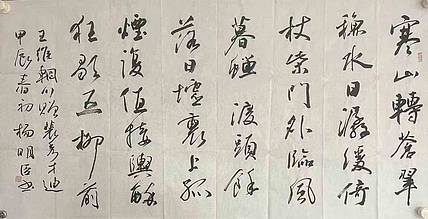 寒山轉蒼翠
穐水日潺湲倚
杖柴門外臨風
暮蟬渡頭餘
落日墟裏上孤
煙復值接輿醉
狂歌五柳前
王維輞川贈裴秀才迪
甲辰春初楊明臣书